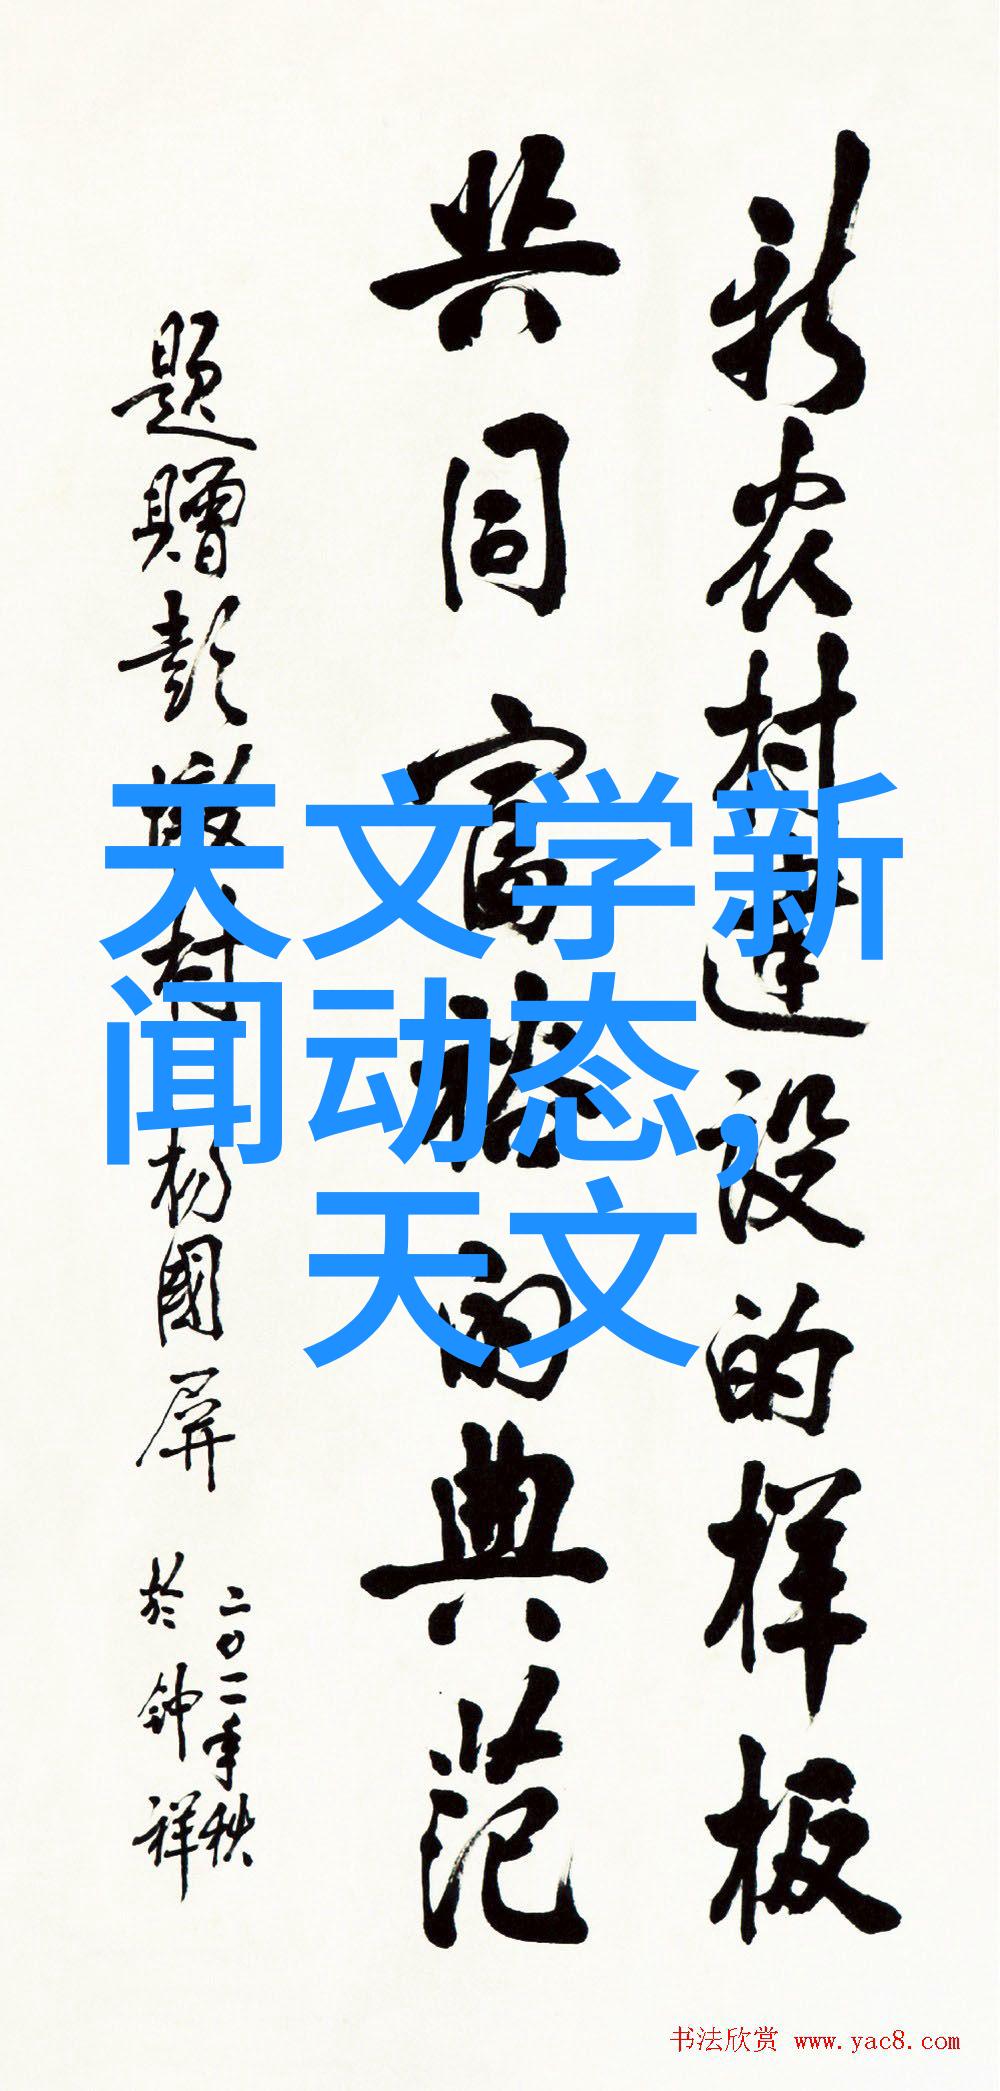 新农村建设的样板
共同富裕的典范
题赠彭墩村杨国屏
二〇一一年秋
於钟祥
天文学新
闻动态,
天文
书法欣赏 www.yac8.com